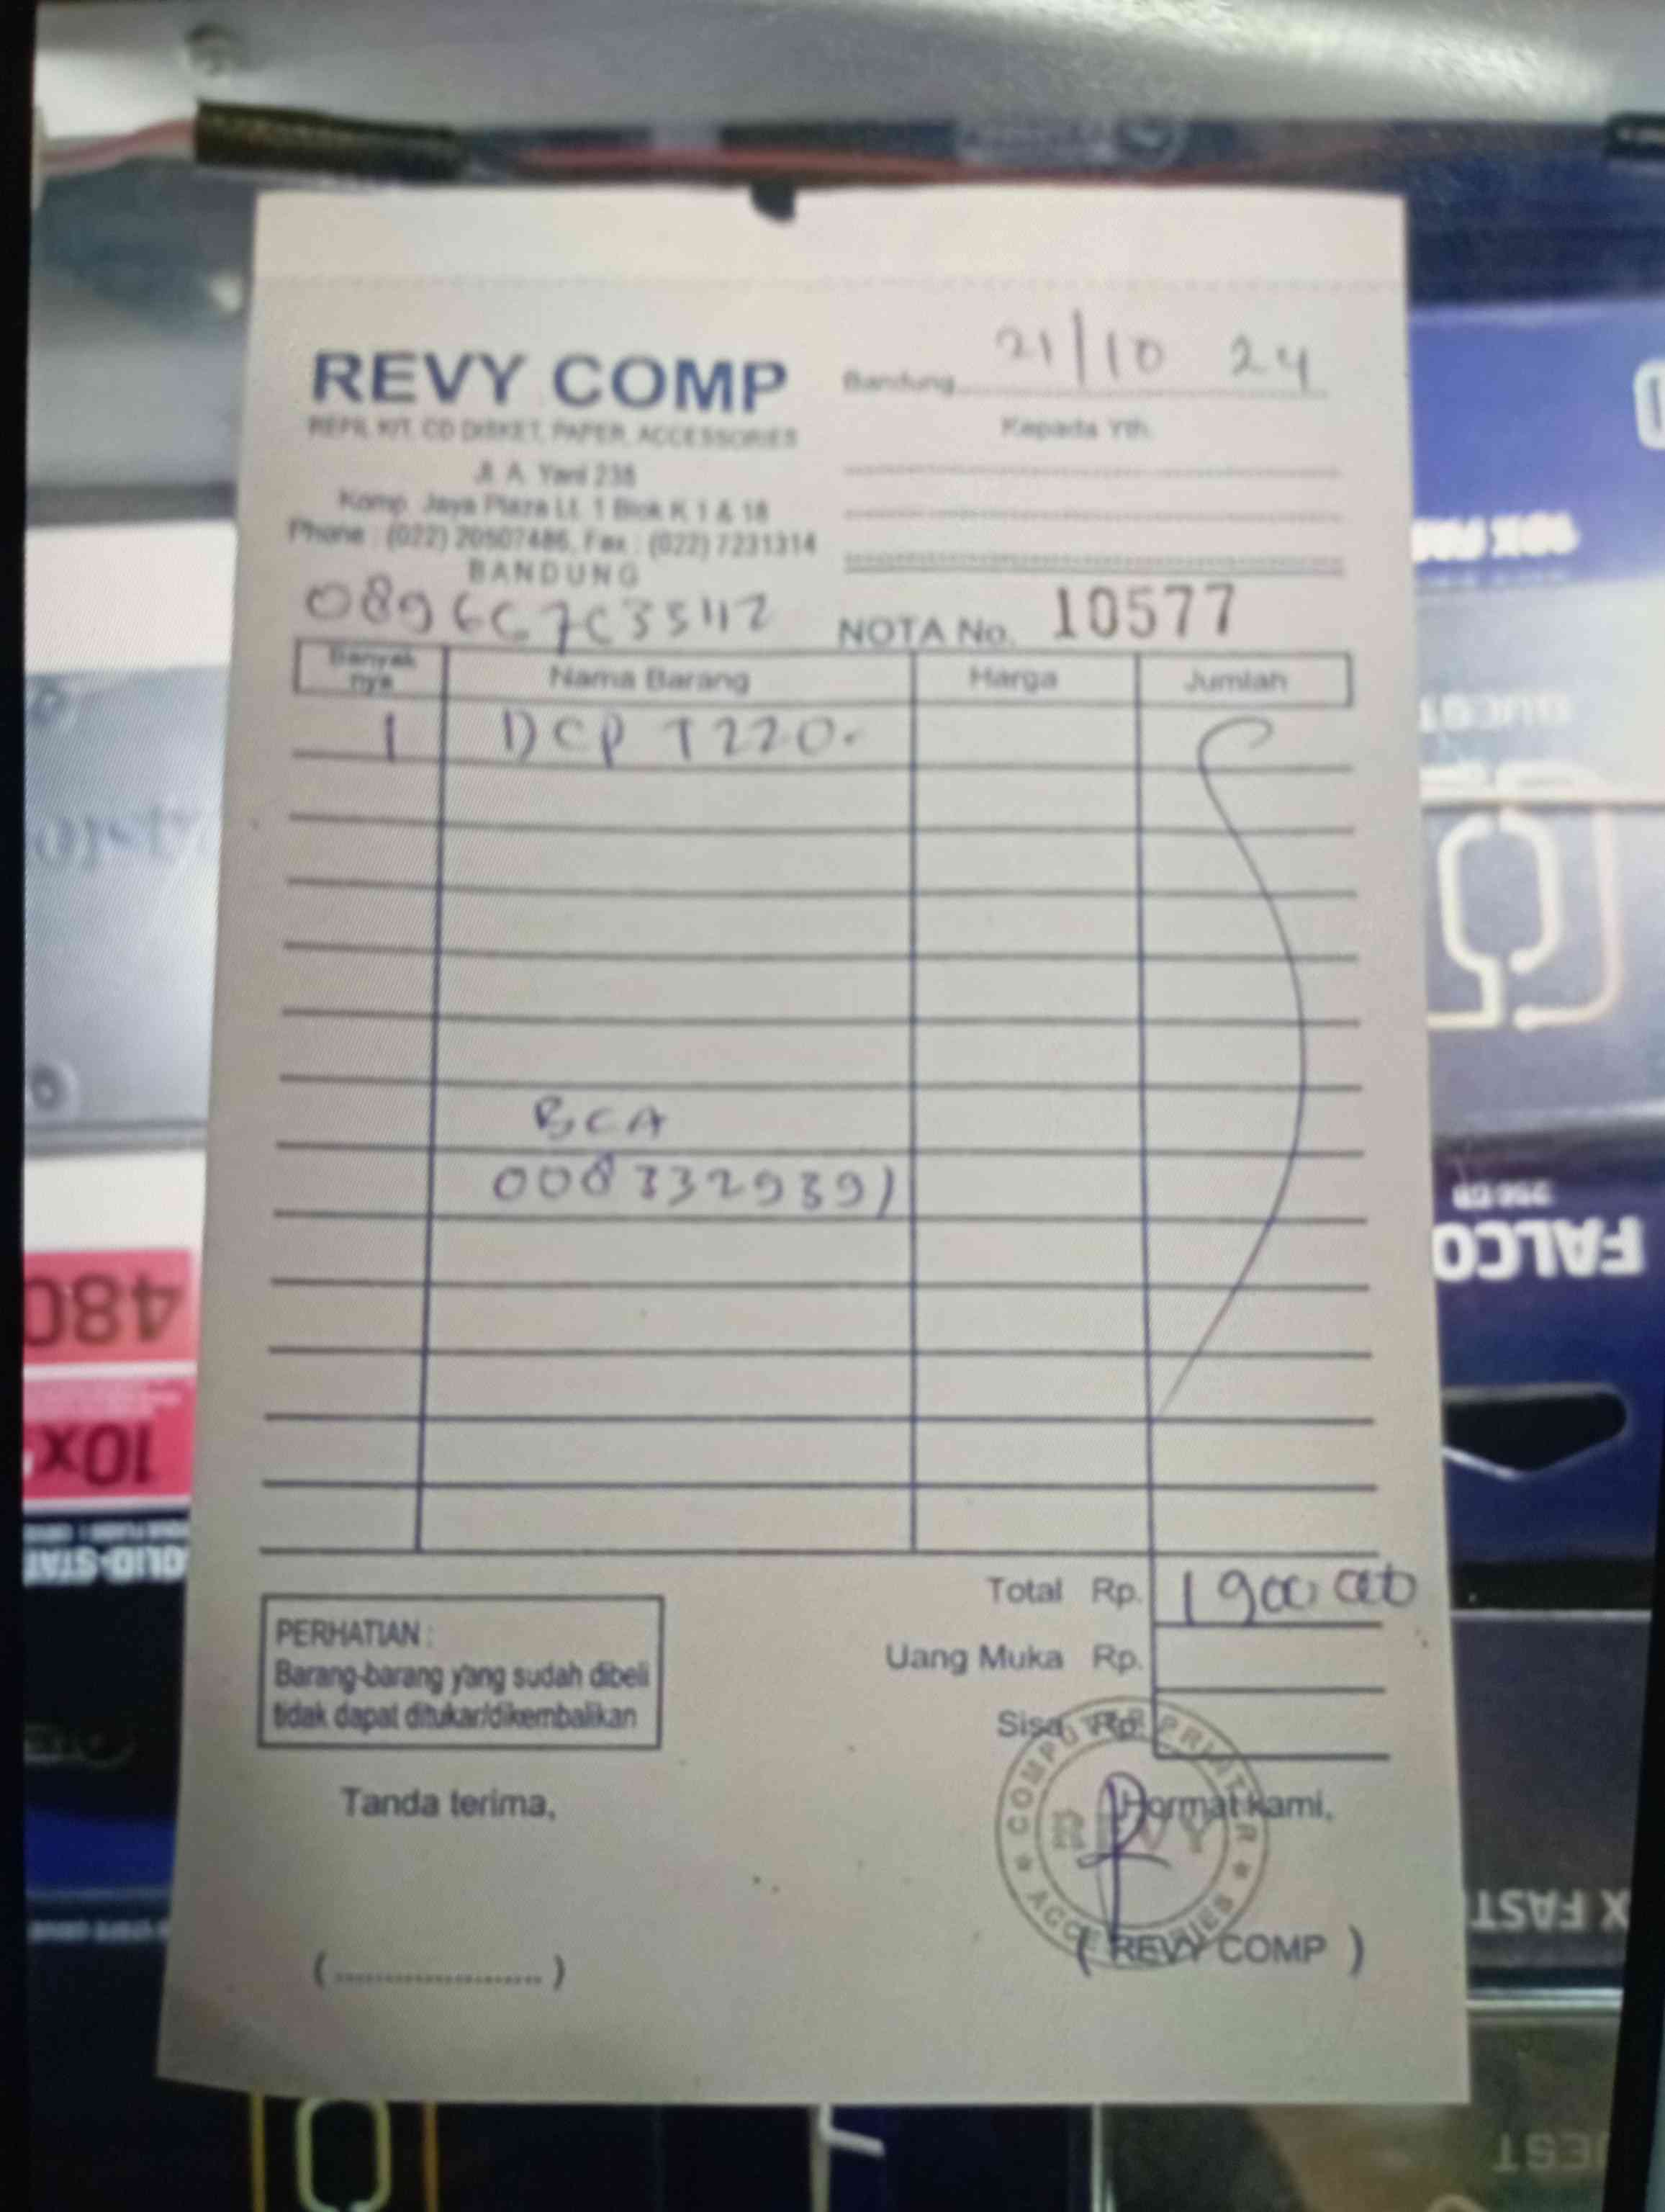 REVY COMP
REFIL KIT, CD DISKET, PAPER, ACCESSORIES
Jl. A. Yani 238
Komp. Jaya Plaza Lt. 1 Blok K 1 & 18
Phone : (022) 20507486, Fax : (022) 7231314
BANDUNG
Bandung 21/10 24
Kepada Yth.
NOTA No. 10577
Banyak nya Nama Barang Harga Jumlah
1 DCP T220.
BCA
0083329391
Total Rp. 1900.000
Uang Muka Rp.
Sisa Rp.
PERHATIAN :
Barang-barang yang sudah dibeli
tidak dapat ditukar/dikembalikan
Tanda terima,
Hormat kami,
COMPUTER PRINTER
REVY
ACCESSORIES
(....................)
( REVY COMP )
480
10x
SOLID-STAT
FALCO
256 GB
X FAST